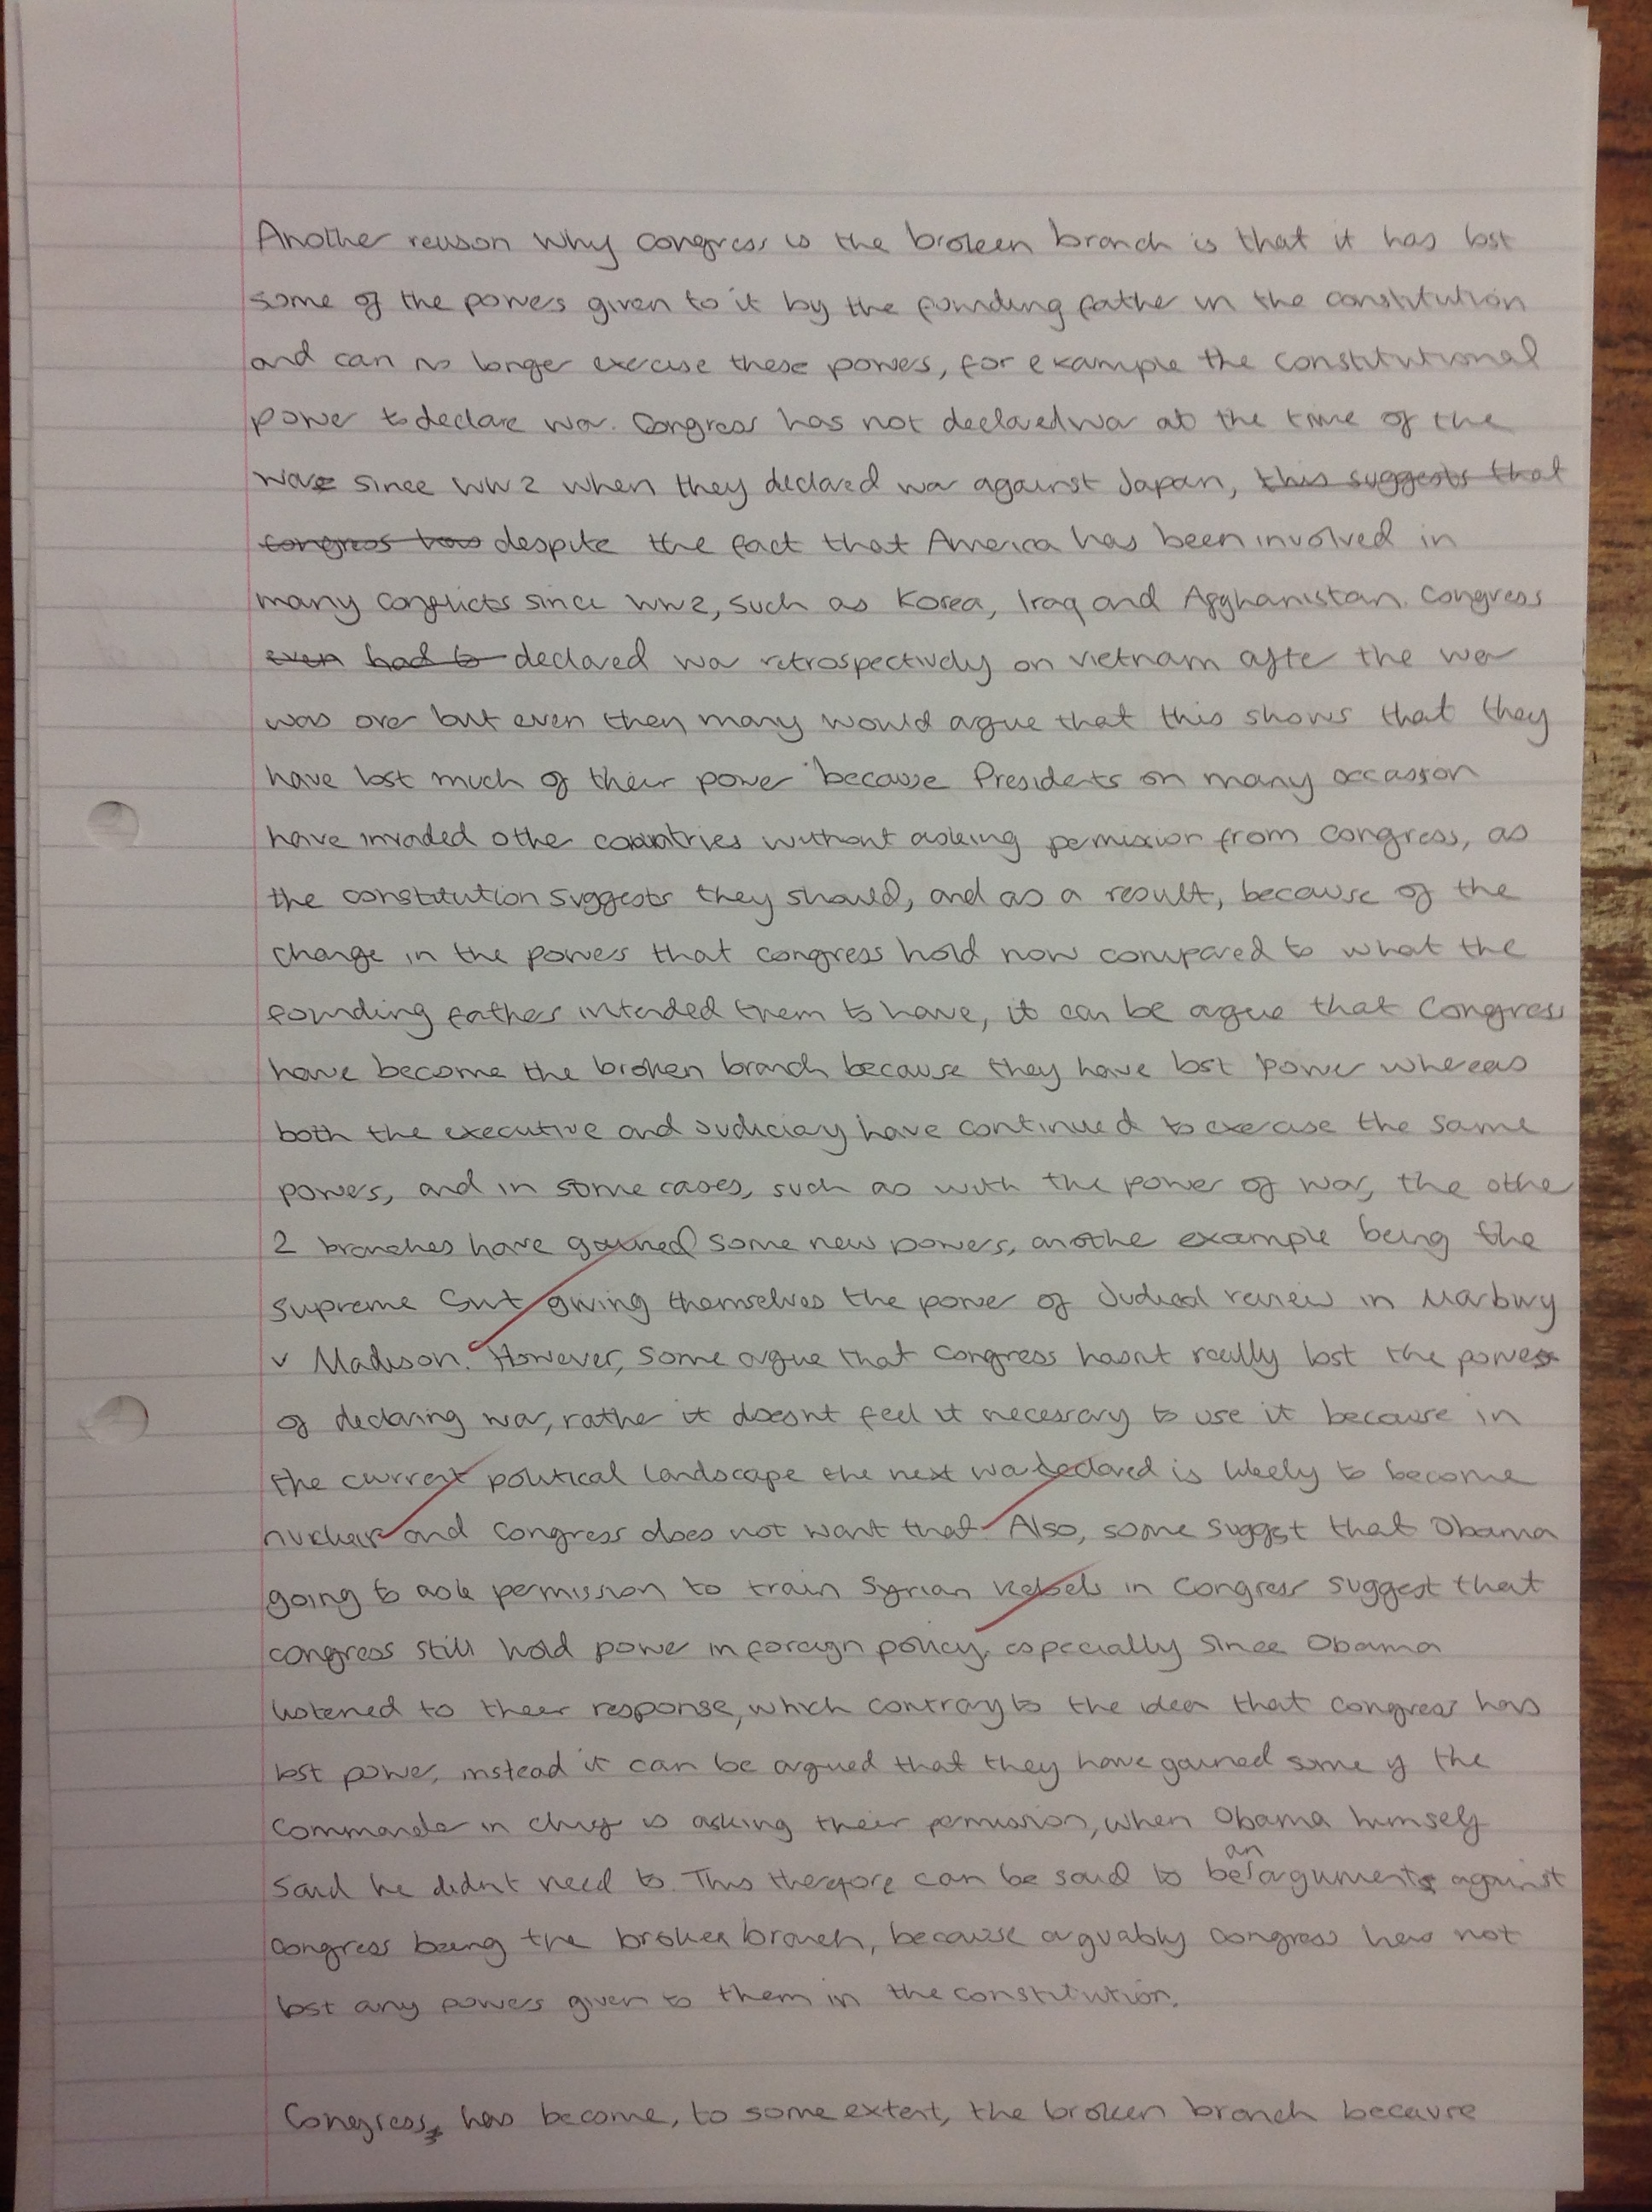 Another reason why congress is the broken branch is that it has lost
some of the powers given to it by the founding father in the constitution
and can no longer exercise these powers, for example the constitutional
power to declare war. Congress has not declared war at the time of the
war since WW2 when they declared war against Japan, this suggests that
congress has despite the fact that America has been involved in
many conflicts since WW2, such as Korea, Iraq and Afghanistan. Congress
even had to declared war retrospectively on Vietnam after the war
was over but even then many would argue that this shows that they
have lost much of their power because Presidents on many occassion
have invaded other countries without asking permission from congress, as
the constitution suggests they should, and as a result, because of the
change in the powers that congress hold now compared to what the
founding fathers intended them to have, it can be argue that Congress
have become the broken branch because they have lost power whereas
both the executive and judiciary have continued to exercise the same
powers, and in some cases, such as with the power of war, the other
2 branches have gained some new powers, another example being the
Supreme Court giving themselves the power of Judical review in Marbury
v Madison. However, some argue that congress hasnt really lost the power
of declaring war, rather it doesnt feel it necessary to use it because in
the current political landscape the next war declared is likely to become
nuclear and congress does not want that. Also, some suggest that Obama
going to ask permission to train Syrian rebels in Congress suggest that
congress still hold power in foreign policy, especially since Obama
listened to their response, which contrary to the idea that congress has
lost power, instead it can be argued that they have gained some if the
Commander in chief is asking their permission, when Obama himself
said he didnt need to. This therefore can be said to be an argument against
congress being the broken branch, because arguably congress has not
lost any powers given to them in the constitution.
Congress has become, to some extent, the broken branch because